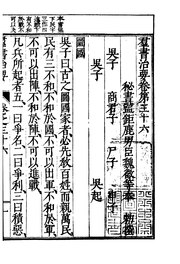 羣書治要卷第三十六
秘書監鉅鹿男臣魏徵等奉　勅撰
吳子　商君子　尸子　申子
吳子　吳起
圖國
吳子曰古之圖國家者必先教百姓而親萬民
民有四不和不和於國不可以出軍不和於軍
不可以出陳不和於陳不可以進戰
凡兵所起者五一曰爭名二曰爭利三曰積惡